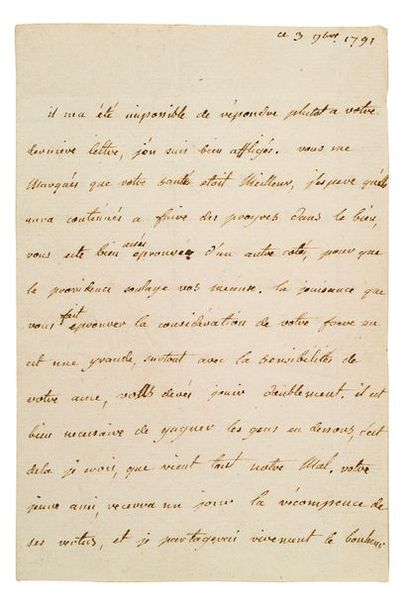 ce 3 9bre 1791
il m'a été impossible de répondre plutot a votre
derniere lettre, j'en suis bien affligés. vous me
Marqués que votre santé étoit Meilleur, j'espere qu'elle
aura continués a faire des progrès dans le bien,
vous este bien assés eprouvée d'un autre coté, pour que
le providence soulage vos
la jouissance que
vous fait eprouver la considération de votre frere en
est une grande, surtout avec la sensibilités de
votre ame, vous devés jouir doublement. il est
bien necessaire de gagner les gens en dessous, c'est
dela je crois, que vient tout notre Mal. votre
jeune ami, recevra un jour la récompence de
ses vertus, et je partagerai vivement le bonheur